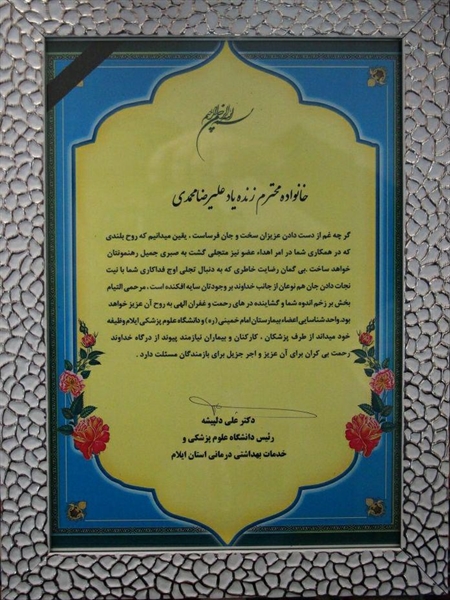 بسم الله الرحمن الرحیم
خانواده محترم زنده یاد علیرضا محمدی
گر چه غم از دست دادن عزیزان سخت و جان فرساست , یقین میدانیم که روح بلندی
که در همکاری شما در امر اهداء عضو نیز متجلی گشت به صبری جمیل رهنمونتان
خواهد ساخت .بی گمان رضایت خاطری که به دنبال تجلی اوج فداکاری شما با نیت
نجات دادن جان هم نوعان از جانب خداوند بر وجودتان سایه افکنده است , مرحمی التیام
بخش بر زخم اندوه شما و گشاینده در های رحمت و غفران الهی به روح آن عزیز خواهد
بود. واحد شناسایی اعضاء بیمارستان امام خمینی (ره) و دانشگاه علوم پزشکی ایلام وظیفه
خود میداند از طرف پزشکان , کارکنان و بیماران نیازمند پیوند از درگاه خداوند
رحمت بی کران برای آن عزیز و اجر جزیل برای بازمندگان مسئلت دارد .
دکتر علی دلپیشه
رئیس دانشگاه علوم پزشکی و
خدمات بهداشتی درمانی استان ایلام